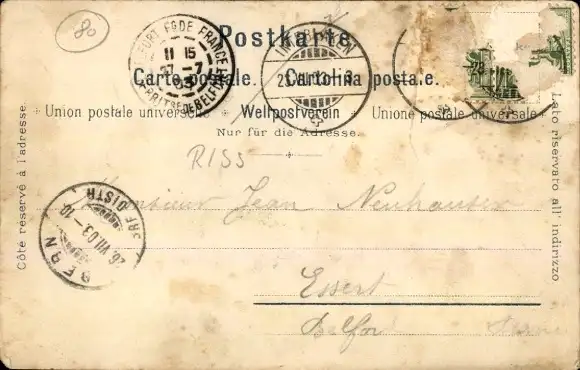 80
Postkarte
Carte postale. Cartolina posta.e.
Union postale universelle Weltpostverein Unione postale universale
Nur für die Adresse.
Côté réservé à l'adresse.
Lato riservato all' indirizzo
FORT FG DE FRANCE
11 15
27 -7
03
BELFORT
INTERLAKEN
BERN
26. VII. 03 - 10
BRF. DISTR
RISS
Monsieur Jean Neuhauser
Essert
Belfort